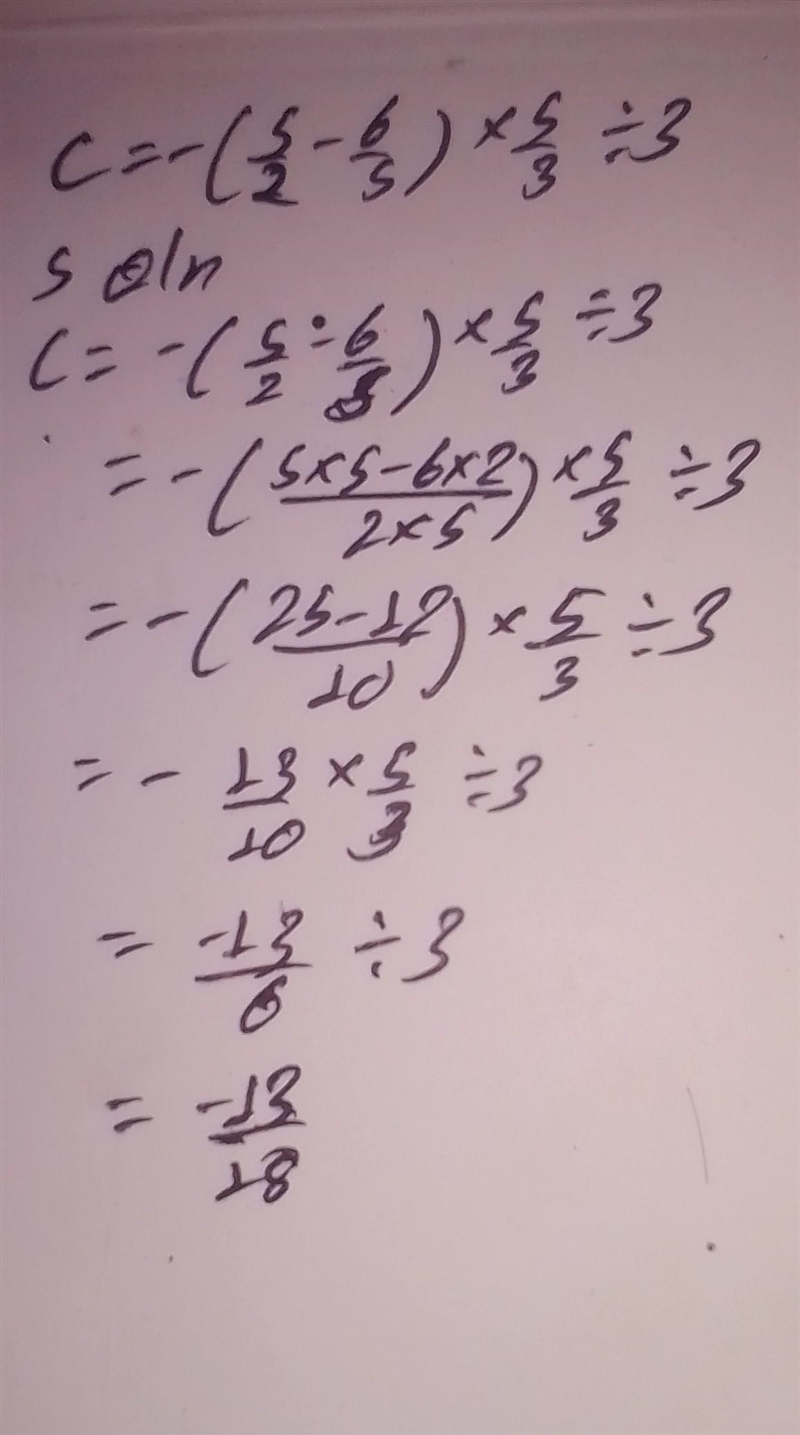 C = -(5/2 - 6/5) × 5/3 ÷ 3
soln
C = -(5/2 - 6/5) × 5/3 ÷ 3
= -((5×5-6×2)/(2×5)) × 5/3 ÷ 3
= -((25-12)/10) × 5/3 ÷ 3
= - 13/10 × 5/3 ÷ 3
= -13/6 ÷ 3
= -13/18